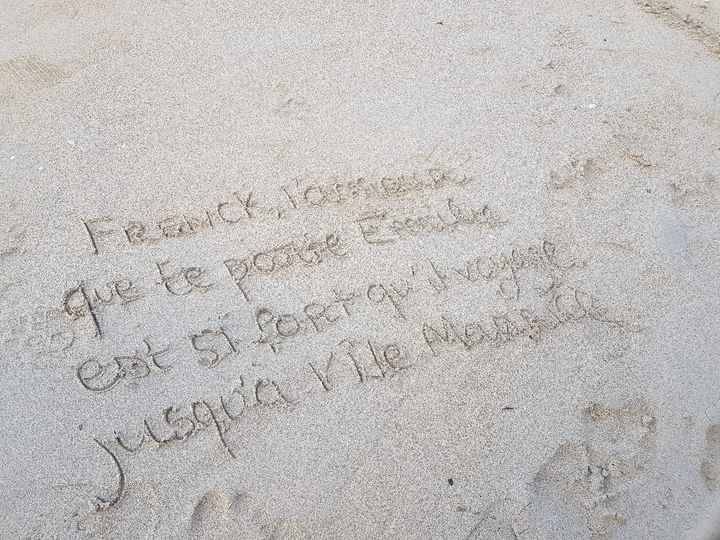 FRANCK, l'amour
que te porte Emilie
est si fort qu'il voyage
jusqu'à l'île Maurice